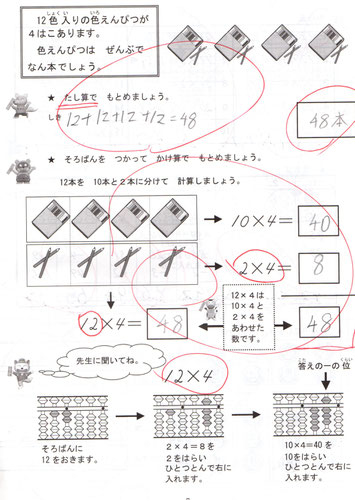 12色入りの色えんぴつが
4はこあります。
色えんぴつは ぜんぶで
なん本でしょう。
★ たし算で もとめましょう。
しき 12+12+12+12=48
48本
★ そろばんを つかって かけ算で もとめましょう。
12本を 10本と2本に分けて 計算しましょう。
10×4= 40
2×4= 8
12×4= 48
12×4は
10×4と
2×4を
あわせた
数です。
48
先生に聞いてね。
12×4
答えの一の位
そろばんに
12をおきます。
2×4=8を
2をはらい
ひとつとんで右に
入れます。
10×4=40を
10をはらい
ひとつとんで右に
入れます。